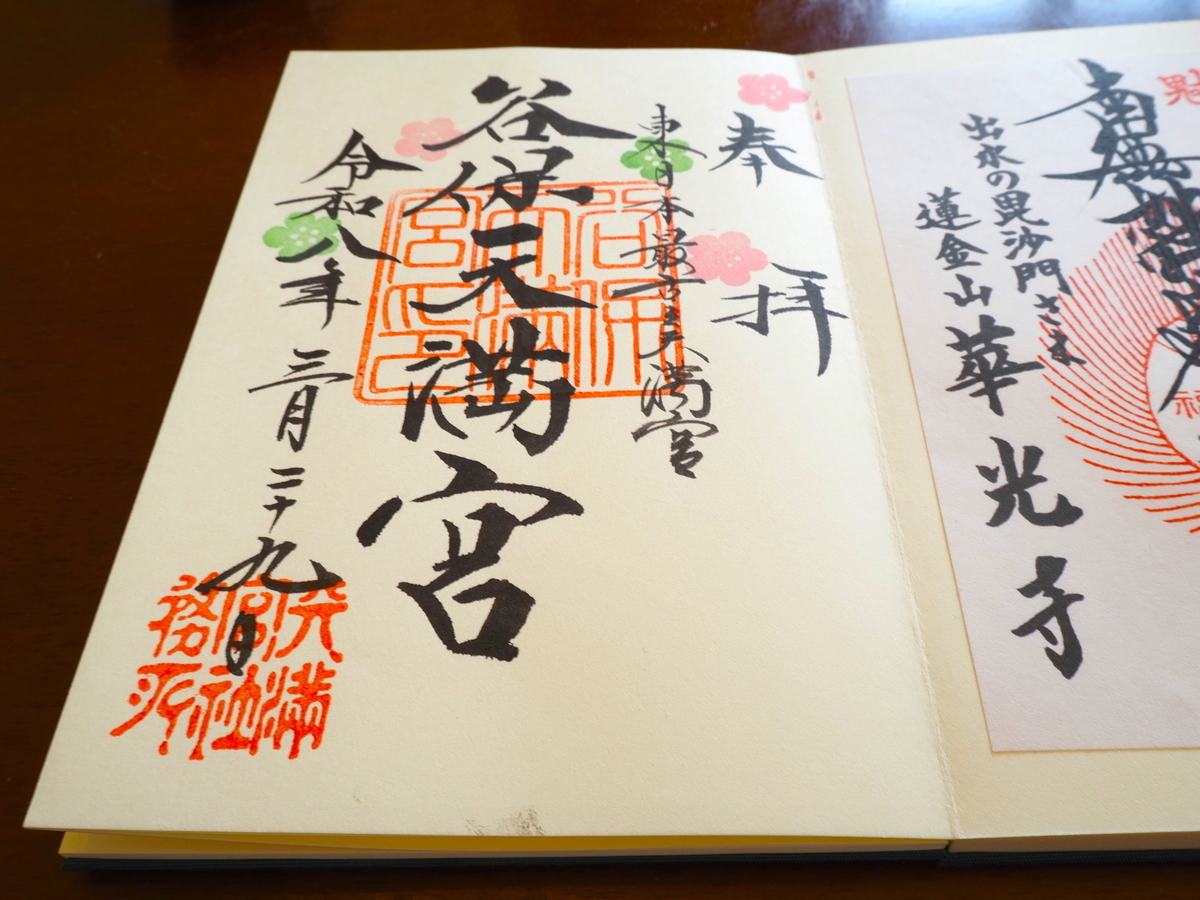 南無
出水の毘沙門さま
蓮金山 華光寺
奉拝
東日本最古天満宮
谷保天満宮
谷保天満宮印
令和八年 三月二十九日
天満宮社務所